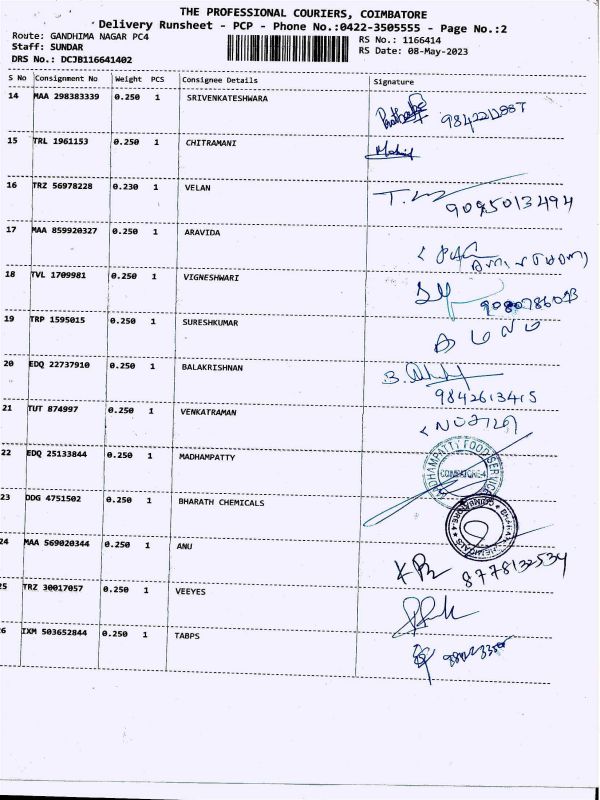 THE PROFESSIONAL COURIERS, COIMBATORE
Delivery Runsheet - PCP - Phone No.:0422-3505555 - Page No.:2
Route: GANDHIMA NAGAR PC4
Staff: SUNDAR
DRS No.: DCJB116641402
RS No.: 1166414
RS Date: 08-May-2023
S No Consignment No Weight PCS Consignee Details Signature
14 MAA 298383339 0.250 1 SRIVENKATESHWARA
15 TRL 1961153 0.250 1 CHITRAMANI
16 TRZ 56978228 0.230 1 VELAN
9095013494
17 MAA 859920327 0.250 1 ARAVIDA
18 TVL 1709981 0.250 1 VIGNESHWARI
19 TRP 1595015 0.250 1 SURESHKUMAR
20 EDQ 22737910 0.250 1 BALAKRISHNAN
9842613415
21 TUT 874997 0.250 1 VENKATRAMAN
22 EDQ 25133844 0.250 1 MADHAMPATTY
MADHAMPATTY FOOD SERVICE
COIMBATORE-4
23 DDG 4751502 0.250 1 BHARATH CHEMICALS
BHARATH CHEMICALS
COIMBATORE
24 MAA 569020344 0.250 1 ANU
8778132534
25 TRZ 30017057 0.250 1 VEEYES
26 IXM 503652844 0.250 1 TABPS